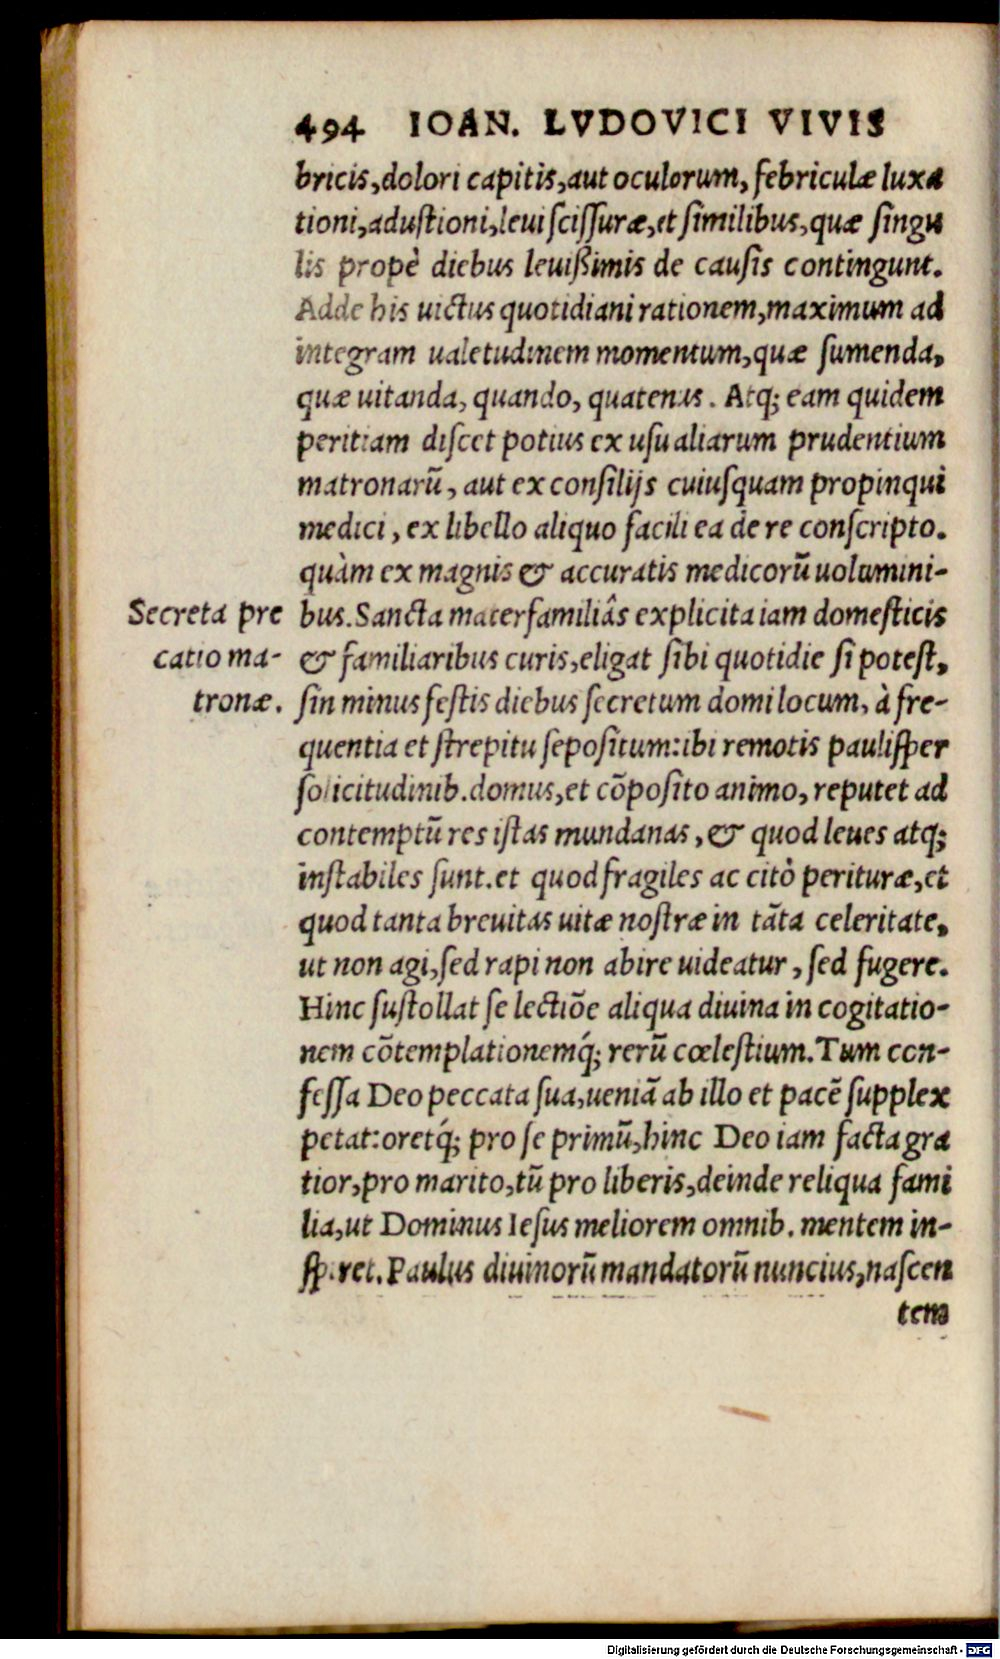 494 IOAN. LVDOVICI VIVIS
bricis, dolori capitis, aut oculorum, febriculæ luxa
tioni, adustioni, leui scissuræ, et similibus, quæ singu
lis propè diebus leuißimis de causis contingunt.
Adde his uictus quotidiani rationem, maximum ad
integram ualetudinem momentum, quæ sumenda,
quæ uitanda, quando, quatenus. Atq; eam quidem
peritiam discet potius ex usu aliarum prudentium
matronarũ, aut ex consilijs cuiusquam propinqui
medici, ex libello aliquo facili ea de re conscripto.
quàm ex magnis & accuratis medicorũ uolumini-
Secreta pre
catio ma-
tronæ.
bus. Sancta materfamiliâs explicita iam domesticis
& familiaribus curis, eligat sibi quotidie si potest,
sin minus festis diebus secretum domi locum, à fre-
quentia et strepitu sepositum: ibi remotis paulisper
solicitudinib. domus, et cõposito animo, reputet ad
contemptũ res istas mundanas, & quod leues atq;
instabiles sunt. et quod fragiles ac citò perituræ, et
quod tanta breuitas uitæ nostræ in tãta celeritate,
ut non agi, sed rapi non abire uideatur, sed fugere.
Hinc sustollat se lectiõe aliqua diuina in cogitatio-
nem cõtemplationemq́; rerũ cœlestium. Tum con-
fessa Deo peccata sua, ueniã ab illo et pacẽ supplex
petat: oretq́; pro se primũ, hinc Deo iam facta gra
tior, pro marito, tũ pro liberis, deinde reliqua fami
lia, ut Dominus Iesus meliorem omnib. mentem in-
spiret. Paulus diuinorũ mandatorũ nuncius, nascen
tem
Digitalisierung gefördert durch die Deutsche Forschungsgemeinschaft - DFG